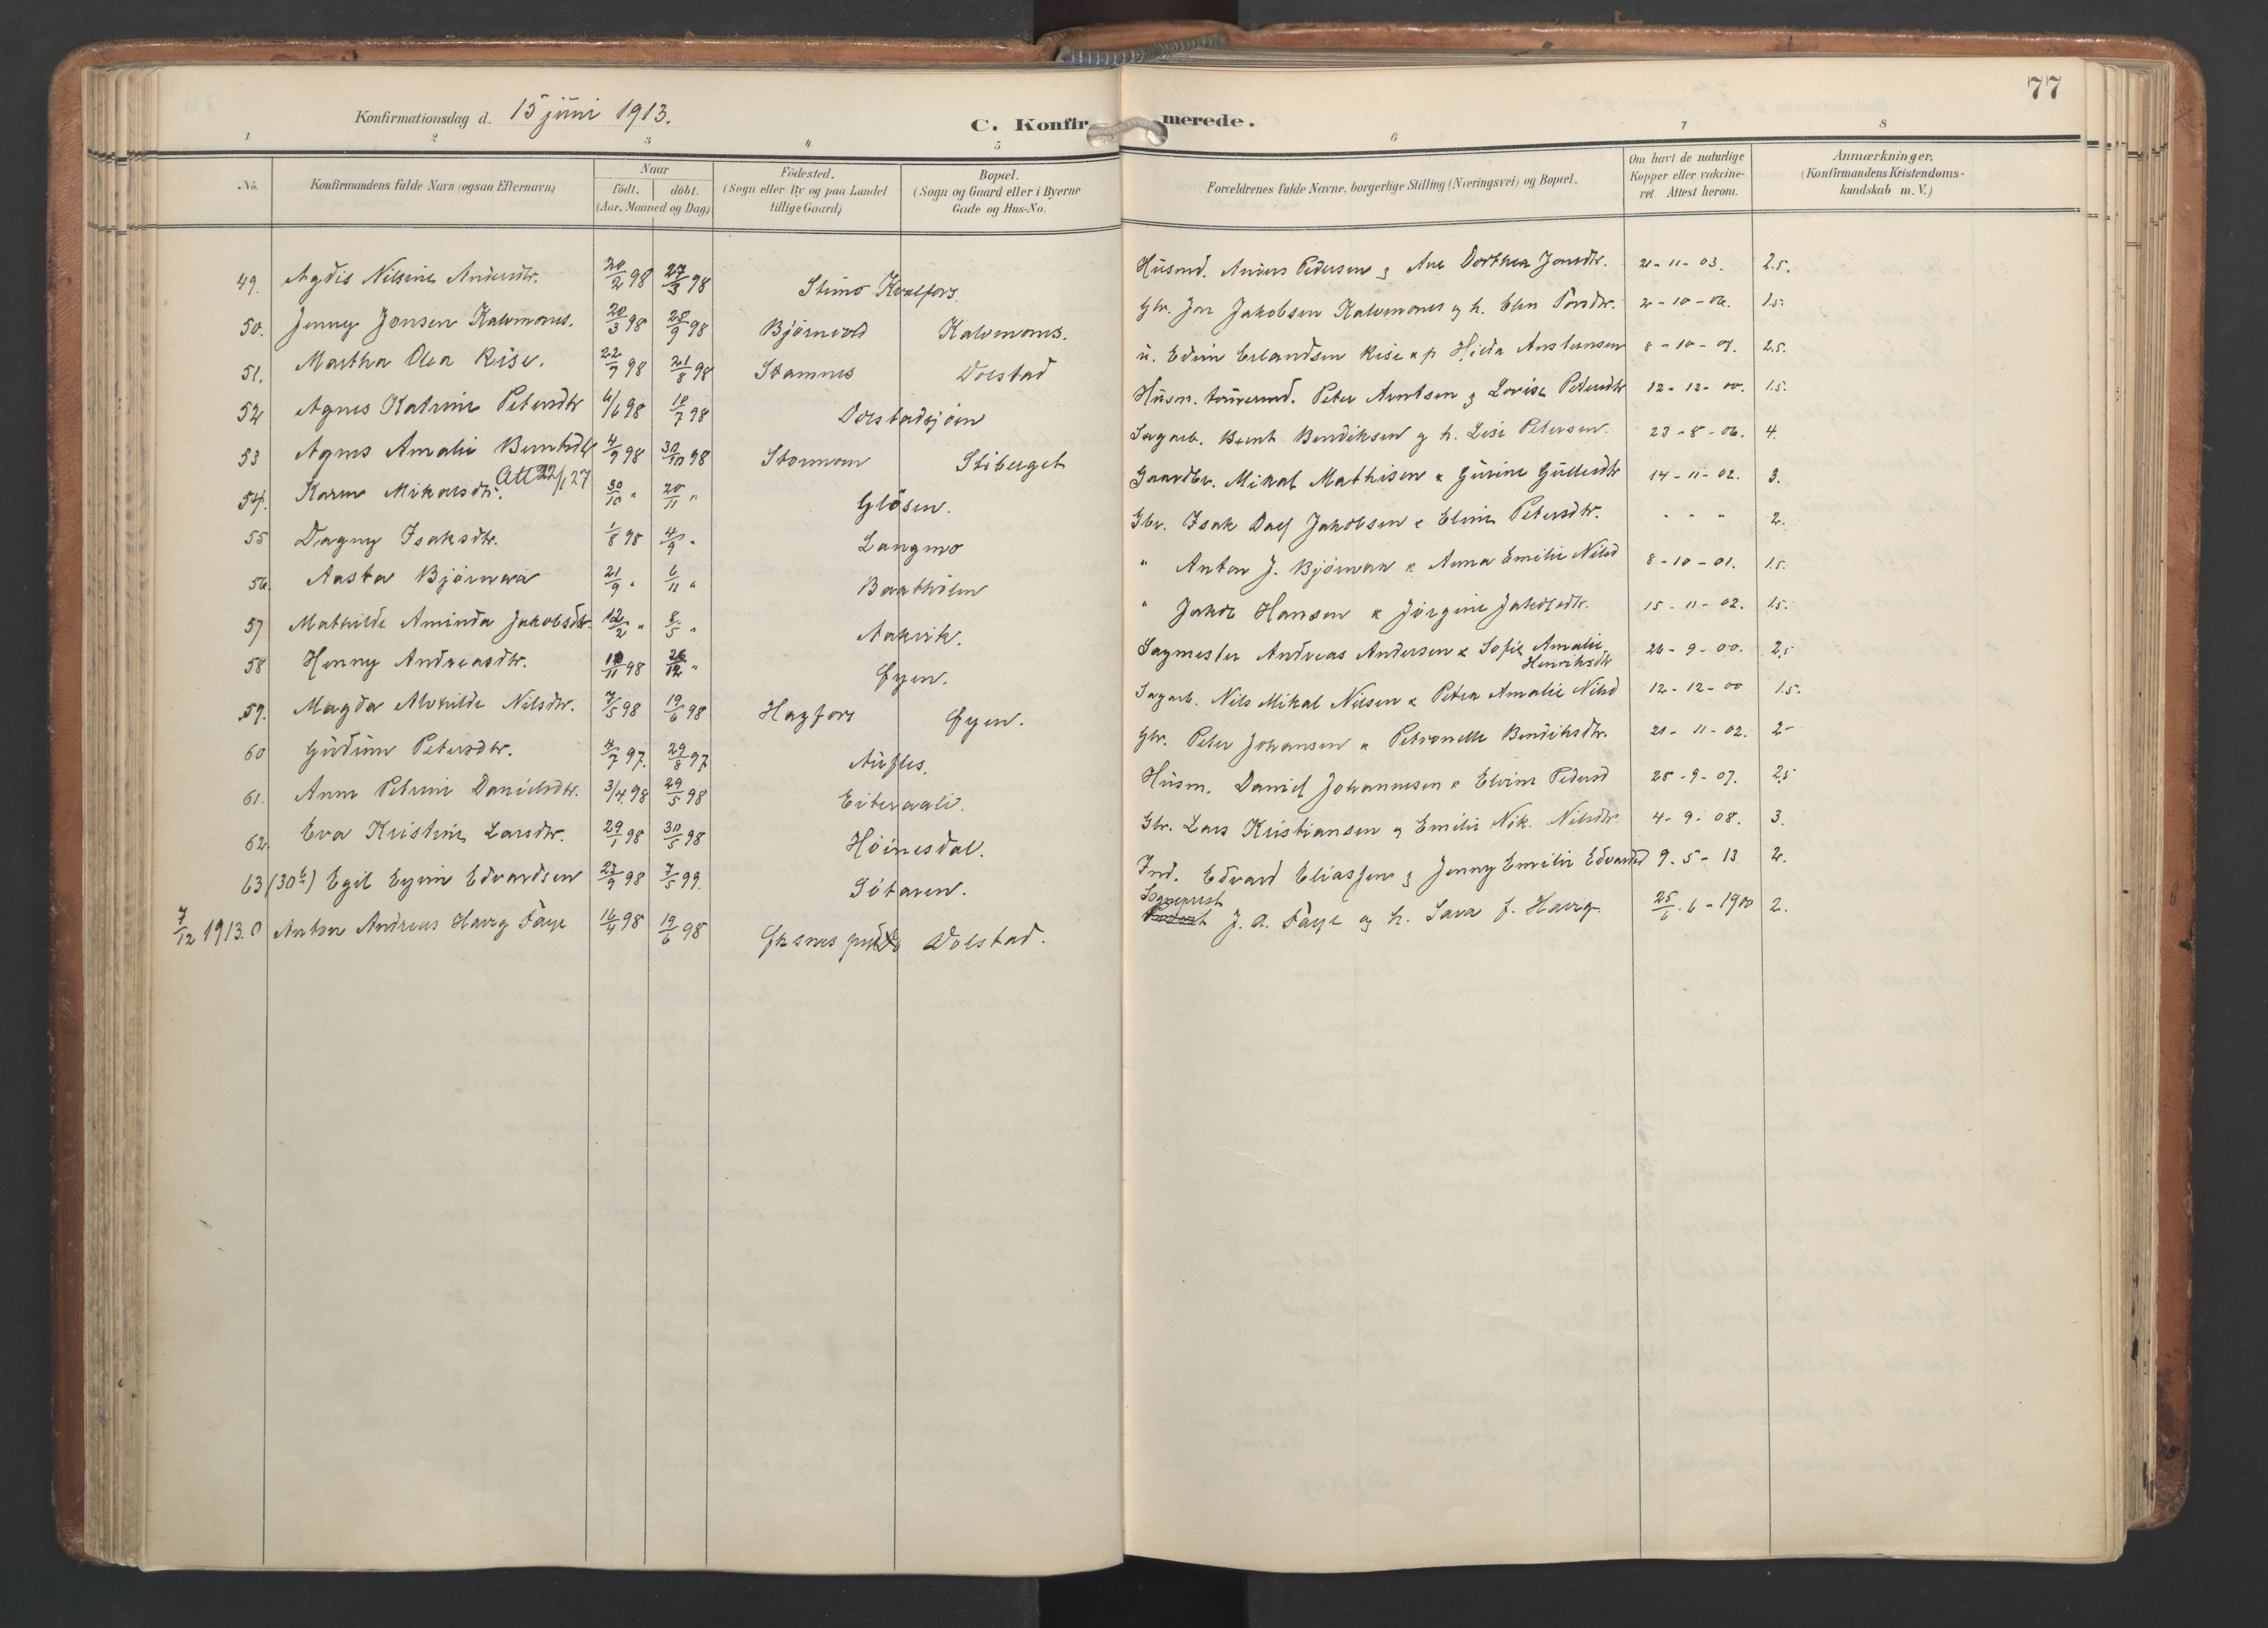 77
Konfirmationsdag d. 15 juni 1913.
C. Konfirmerede.
1 2 3 4 5 6 7 8
No. Konfirmandens fulde Navn (ogsaa Efternavn) Naar født. døbt. (Aar, Maaned og Dag) Fødested. (Sogn eller By og paa Landet tillige Gaard) Bopæl. (Sogn og Gaard eller i Byerne Gade og Hus-No. Forældrenes fulde Navne, borgerlige Stilling (Næringsvei) og Bopæl. Om havt de naturlige Kopper eller vakcineret. Attest herom. Anmærkninger. (Konfirmandens Kristendomskundskab m. V.)
49. Agdis Nilsine Andersdtr. 20/2 98 27/3 98 Stimo Kvalfors. Husmd. Anders Pedersen g Ane Dorthea Jonsdtr. 21-11-03. 2.5.
50. Jenny Jonsen Kalvmones. 20/3 98 25/9 98 Bjørnvold Kalvmones. Gbr. Jon Jakobsen Kalvmones og h. Elen 2-10-06. 1.5.
51. Martha Olea Rise. 22/7 98 21/8 98 Stamnes Dolstad u. Edvin Erlandsen Rise & p Hilda Anstensen 8-10-07. 2.5.
52 Agnes Katrine Petersdtr 6/6 98 18/7 98 Dolstadsjøen Husm. Peter Arntsen g Lovise Petersdtr 12-12-00. 1.5.
53 Agnes Amalie Berntsdtr 4/9 98 30/10 98 Stormoen Stiberget Sagarb. Bernt Bendiksen og h. Lise Petersen. 23-8-06. 4.
54. Karen Mikalsdtr. Att 22/1 27 30/10 " 20/11 " Gløsen. Gaardbr. Mikal Mathisen & Gurine Gullersdtr 14-11-02. 3.
55 Dagny Isaksdtr. 1/8 98 4/9 " Langmo Gbr. Isak Dall Jakobsen & Eline Petersdtr. " " " 2.
56. Aasta Bjørnaa 21/9 " 6/11 " Baatholm " Anton J. Bjørnaa & Anna Emilie Nilsd 8-10-01. 1.5.
57 Mathilde Aminda Jakobsdtr. 12/2 " 8/5 " Aakvik. " Jakob Hansen & Jørgine Jakobsdtr. 15-11-02. 1.5.
58 Henny Andreasdtr. 10/11 98 26/12 " Øyen. Sagmester Andreas Andersen & Sofie Amalie Henriksdtr 26-9-00. 2.5
59. Magda Alvhilde Nilsdtr. 7/5 98 19/6 98 Hagfors Øyen. Sagarb. Nils Mikal Nilsen & Petra Amalie Nilsd 12-12-00 1.5.
60 Gudrun Petersdtr. 4/7 97. 29/8 97 Aufles. Gbr. Peter Johansen & Petronelle Bendiksdtr. 21-11-02. 2-
61. Anne Petrine Danielsdtr. 3/4 98 29/5 98 Eiteraali. Husm. Daniel Johannesen & Elvine Pedersd 25-9-07. 2.5
62. Eva Kristine Larsdtr. 29/1 98 30/5 98 Høinesdal. Gbr. Lars Kristiansen g Emilie Nik. Nilsdtr. 4-9-08. 3.
63 (30 6) Egil Eyvin Edvardsen 23/9 98 7/5 99. Søtaren. Ind. Edvard Eliassen g Jenny Emilie Edvardsd 9-5-13 2.
7/12 1913. 0 Anton Andreas Havig Faye 16/4 98 19/6 98 Øksnes Dolstad. Sogneprest J. A. Faye og h. Sara f. Havig. 25/6. 6-1900 2.